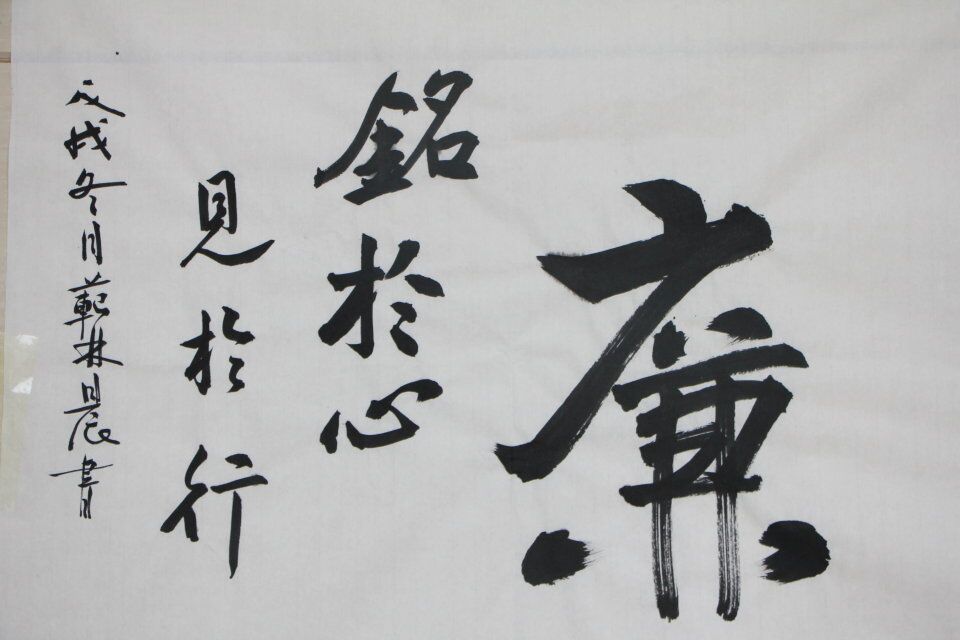 廉
銘於心
見於行
戊戌冬月範林晨書